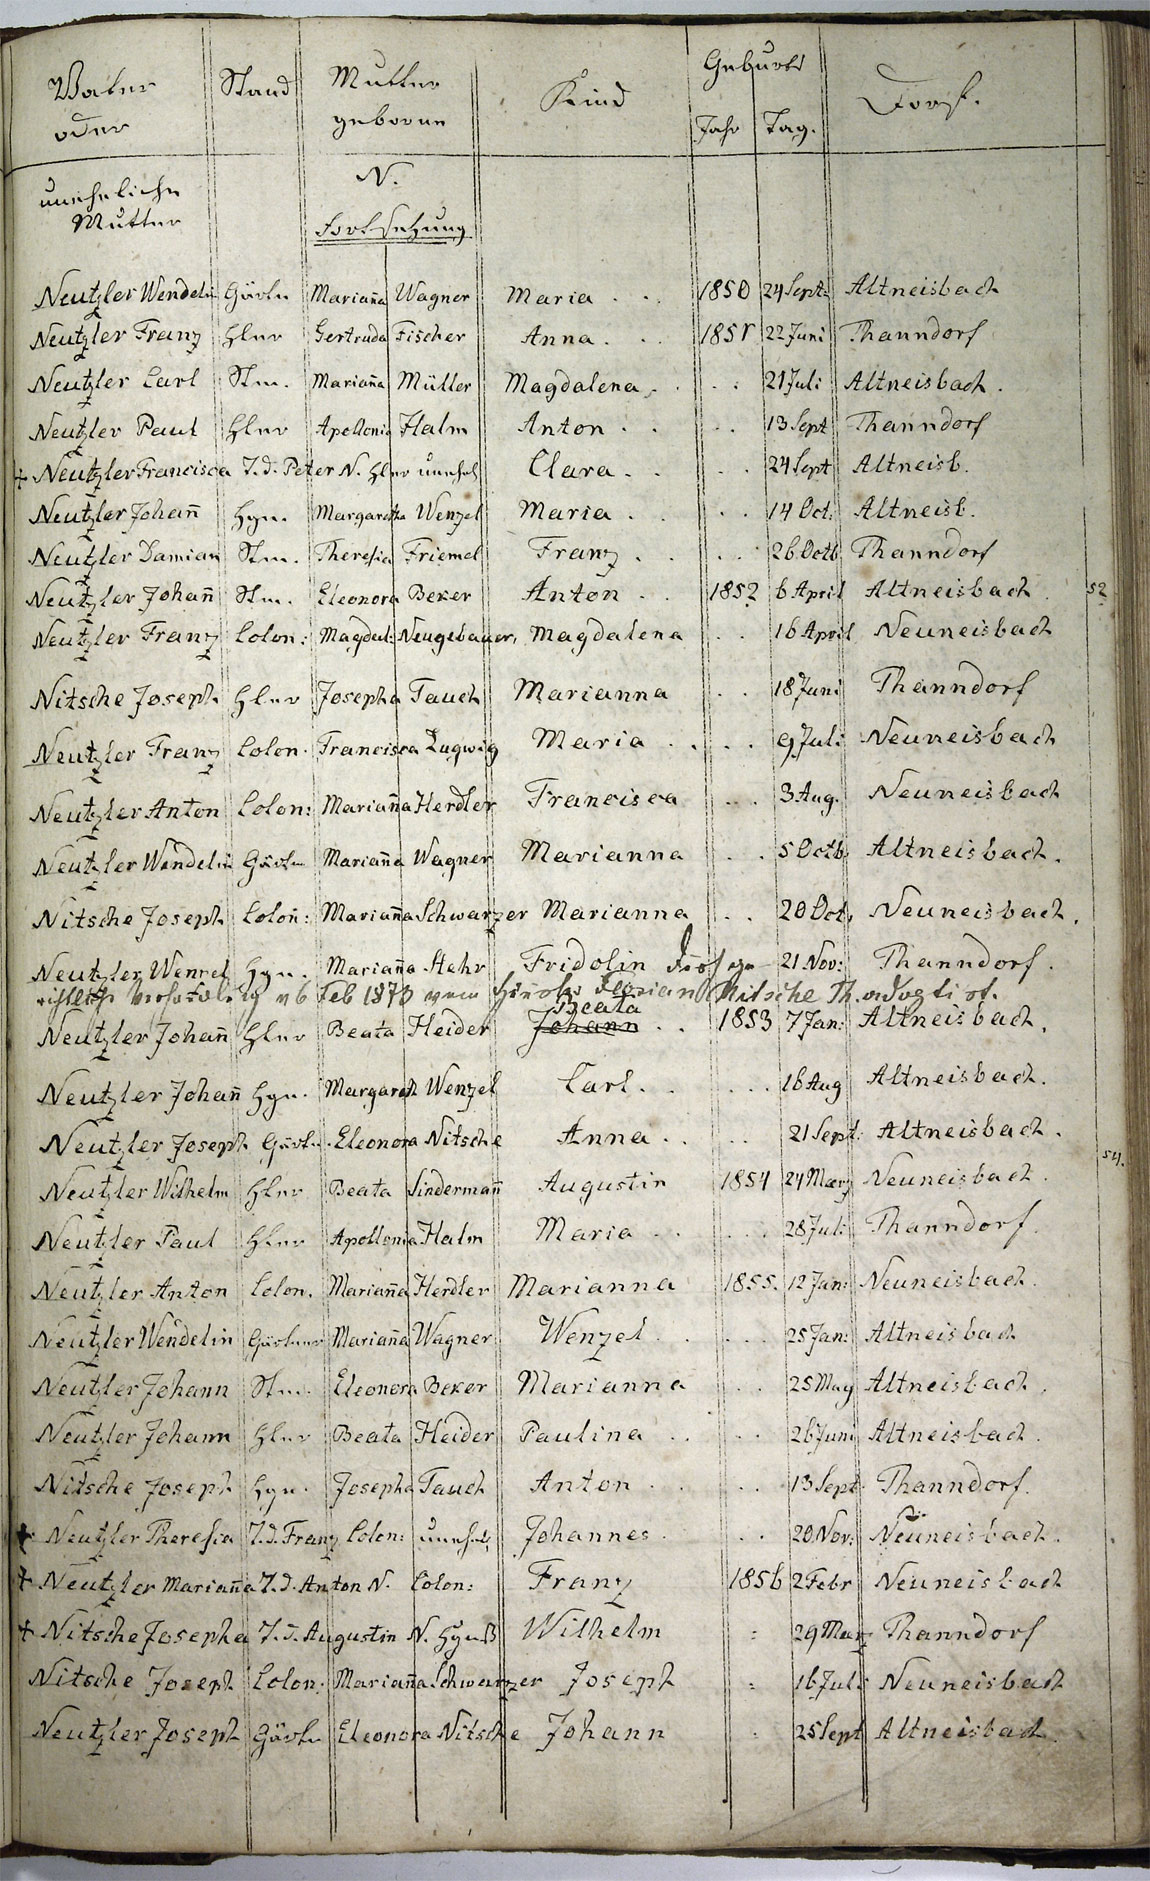 Vater Stand Mutter Kind Geburts Dorf.
oder geborne Jahr Tag.
uneheliche N.
Mutter Fortsetzung
Neutzler Wendelin Gärtn Mariaña Wagner Maria . . . 1850 24 Sept: Altneisbach
Neutzler Franz Hler Gertruda Fischer Anna . . . 1851 22 Juni Thanndorf
Neutzler Carl Stm. Mariaña Müller Magdalena . . . . 21 Juli Altneisbach.
Neutzler Paul Hler Apollonia Halm Anton . . . . 13 Sept Thanndorf
+ Neutzler Francisca T. d. Peter N. Hler unehel Clara . . . . 24 Sept Altneisb.
Neutzler Johañ Hgn. Margaretha Wenzel Maria . . . . 14 Oct: Altneisb.
Neutzler Damian Stm. Theresia Friemel Franz . . . 26 Octb Thanndorf
Neutzler Johañ Stm. Eleonora Beker Anton . . 1852 6 April Altneisbach. 52
Neutzler Franz Colon: Magdal: Neugebauer, Magdalena . . 16 April Neuneisbach
Nitsche Joseph Hler Josepha Tauch Marianna . . 18 Juni Thanndorf
Neutzler Franz Colon. Francisca Lugwig Maria . . . . 9 Juli Neuneisbach
Neutzler Anton Colon: Mariaña Herdler Francisca . . . 3 Aug. Neuneisbach
Neutzler Wendelin Gärtn Mariaña Wagner Marianna . . 5 Octb. Altneisbach.
Nitsche Joseph Coloñ: Mariaña Schwarzer Marianna . . 20 Oct. Neuneisbach.
Neutzler Wenzel Hgn. Mariaña Stehr Fridolin 21 Nov: Thanndorf.
6 Feb 1873 Florian Nitsche Th. adoptirt.
Beata
Neutzler Johañ Hler Beata Heider Johann . . 1853 7 Jan: Altneisbach.
Neutzler Johañ Hgn. Margareth Wenzel Carl . . . . . 16 Aug Altneisbach.
Neutzler Joseph Gärtn. Eleonora Nitsche Anna . . . . 21 Sept: Altneisbach.
54.
Neutzler Wilhelm Hler Beata Sindermañ Augustin 1854 24 Maerz Neuneisbach.
Neutzler Paul Hler Apollonia Halm Maria . . . . . 28 Juli Thanndorf.
Neutzler Anton Colon. Mariaña Herdler Marianna 1855. 12 Jan: Neuneisbach.
Neutzler Wendelin Gärtner Mariaña Wagner Wenzel . . . . 25 Jan: Altneisbach
Neutzler Johann Stm. Eleonora Beker Marianna . . 25 May Altneisbach.
Neutzler Johann Hler Beata Heider Paulina . . . . 26 Juni Altneisbach.
Nitsche Joseph Hgn. Josepha Tauch Anton . . . . 13 Sept. Thanndorf.
+ Neutzler Theresia T. d. Franz Colon: unehel. Johannes . . . 20 Nov: Neuneisbach.
+ Neutzler Mariaña T. d. Anton N. Colon: Franz 1856 2 Febr Neuneisbach
+ Nitsche Josepha T. d. Augustin N. Wilhelm : 29 Marz Thanndorf
Nitsche Joseph Colon: Mariaña Schwarzer Joseph : 16 Juli Neuneisbach
Neutzler Joseph Gärtn Eleonora Nitsche Johann . 25 Sept Altneisbach.